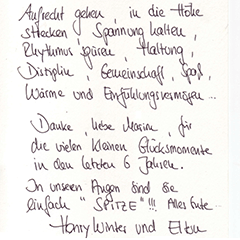 Aufrecht gehen, in die Höhe
strecken, Spannung halten,
Rhythmus spüren, Haltung,
Disziplin, Gemeinschaft, Spaß,
Wärme und Einfühlungsvermögen...
Danke, liebe Marina, für
die vielen kleinen Glücksmomente
in den letzten 6 Jahren.
In unseren Augen sind Sie
einfach "SPITZE"!!! Alles Gute
Winter und Eltern